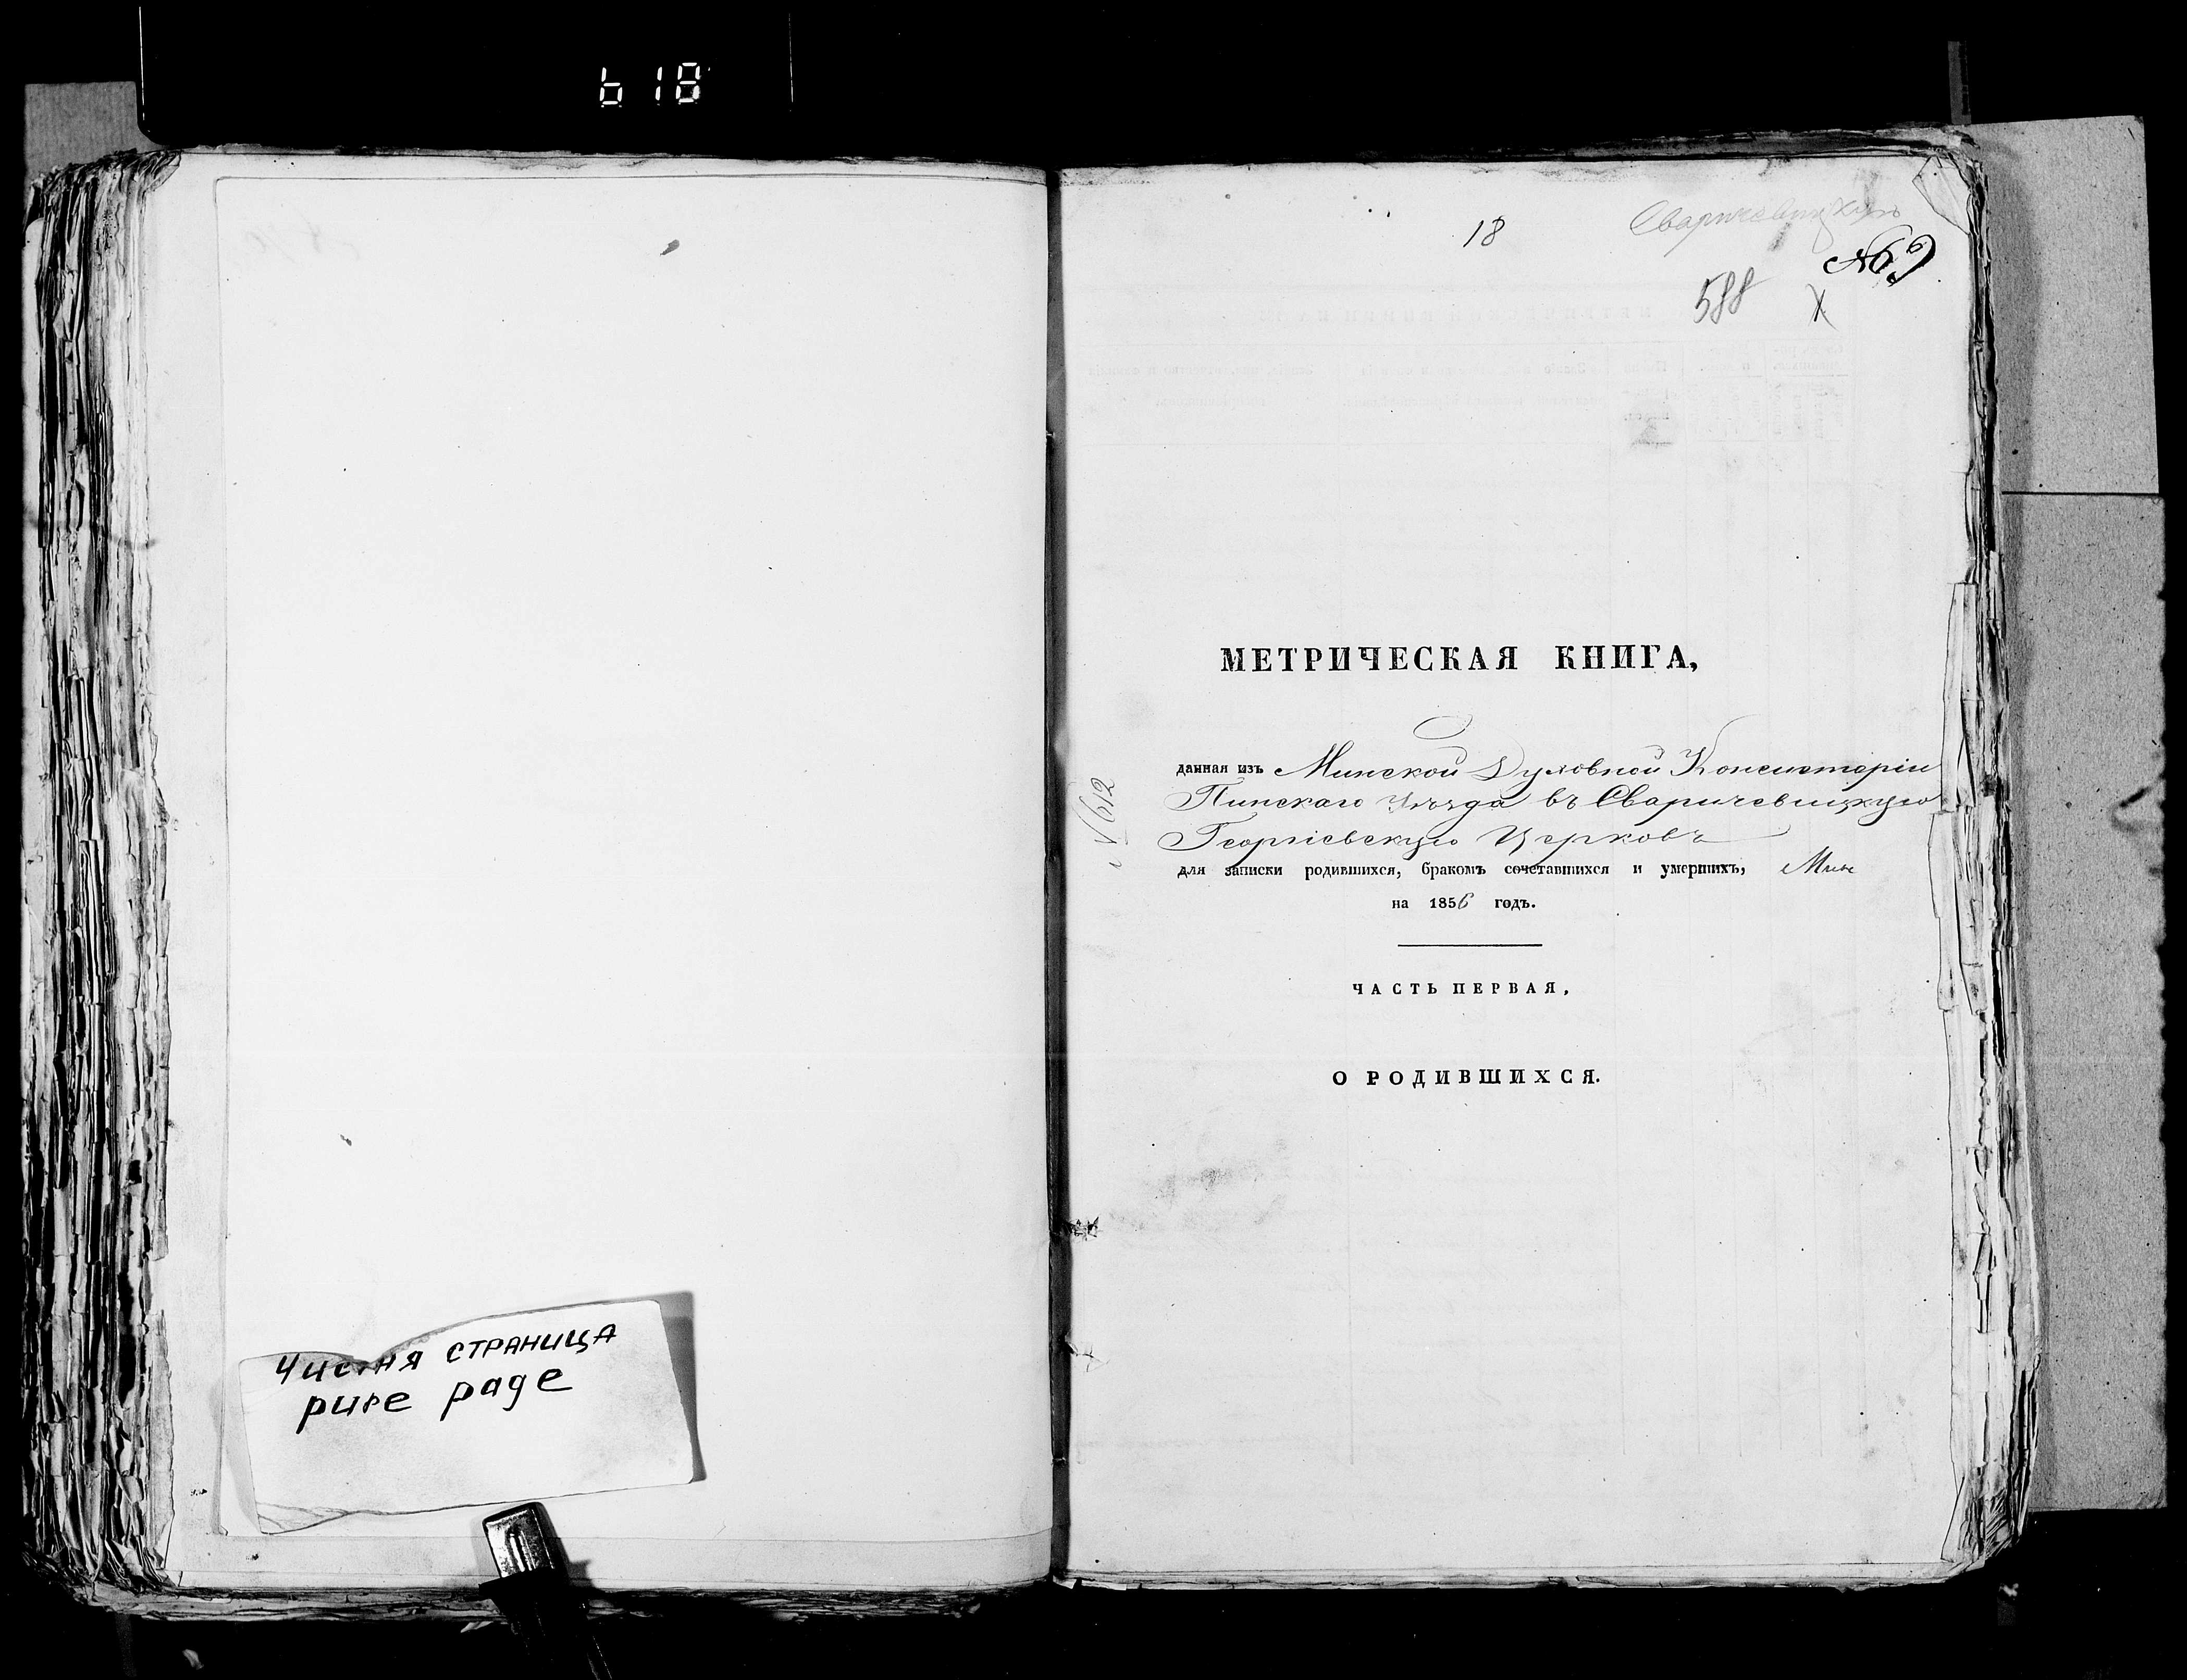 618
Чистая страница
pure page
18
Сваричевицкую
№69
588
X
МЕТРИЧЕСКАЯ КНИГА,
данная изъ Минской Духовной Консисторіи
Пинскаго Уѣзда въ Сваричевицкую
Георгіевскую Церковь
для записки родившихся, бракомъ сочетавшихся и умершихъ,
на 1856 годъ.
ЧАСТЬ ПЕРВАЯ,
О РОДИВШИХСЯ.
№612